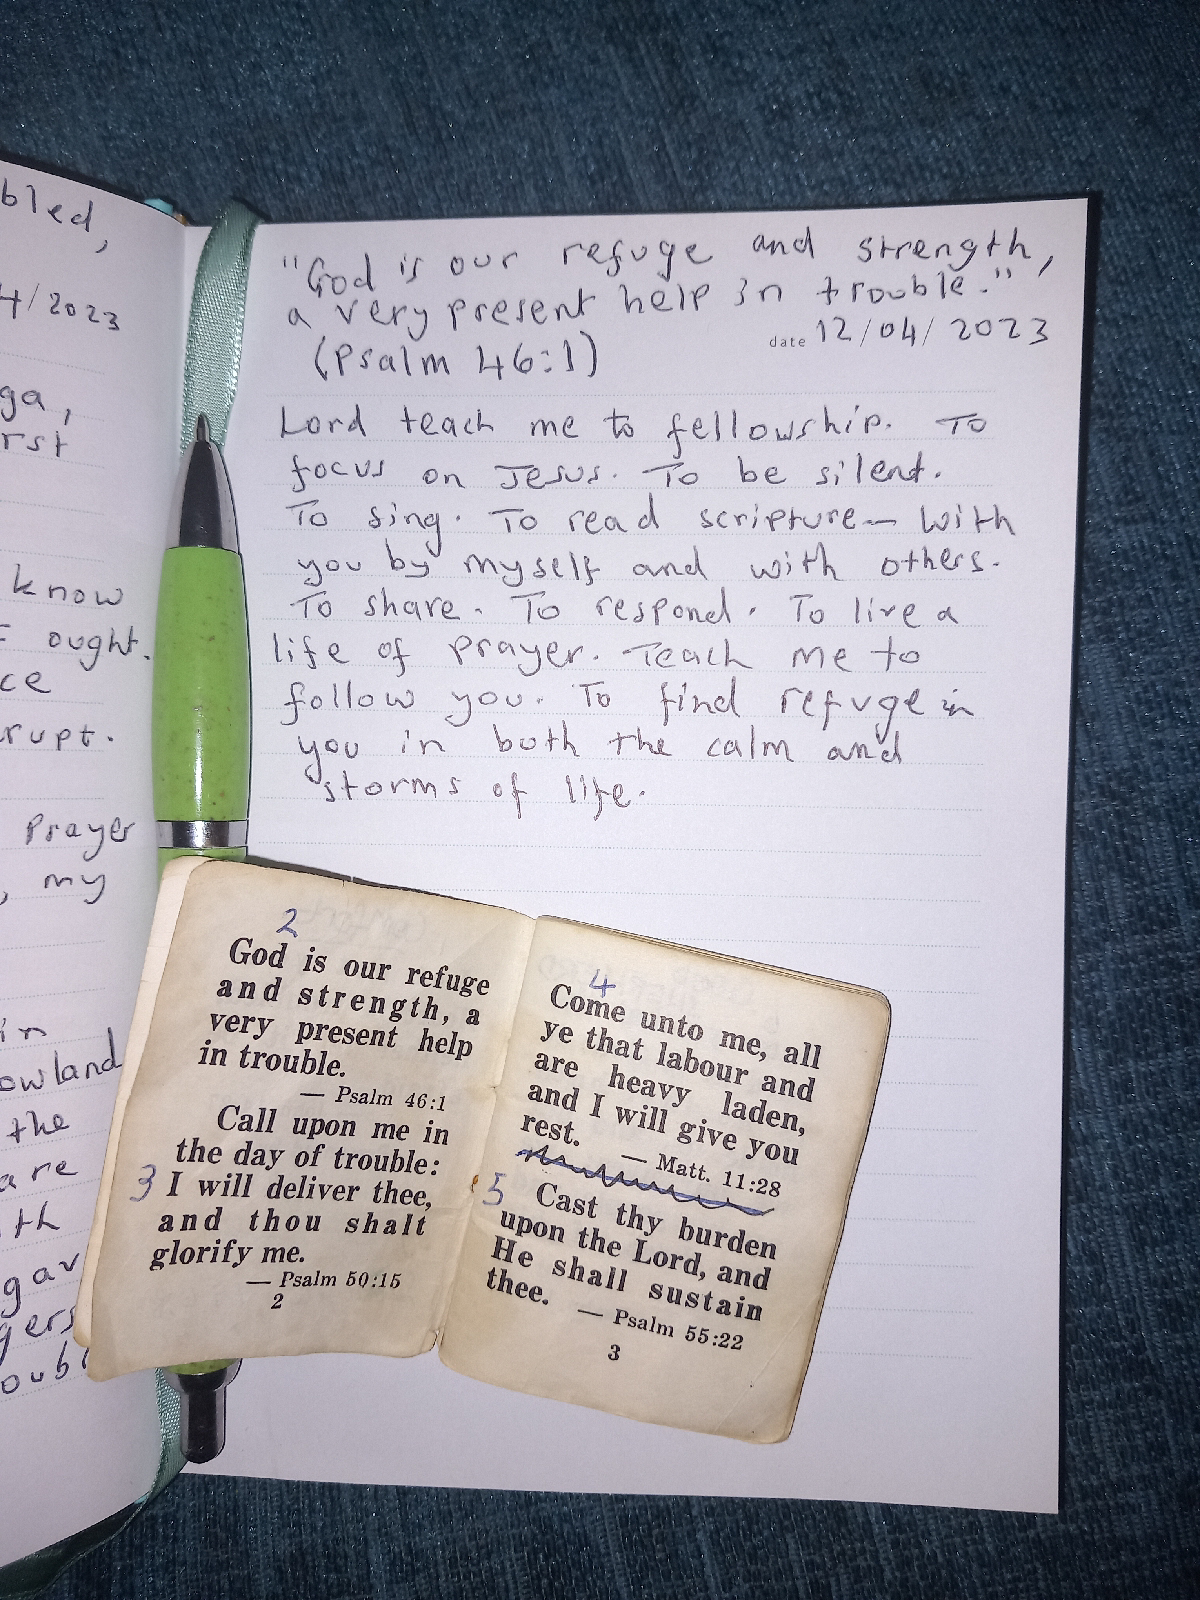 bled,
4/2023
ga,
rst
know
ought.
ce
rupt.
Prayer
, my
in
owland
the
are
th
gav
gers
oubl
"God is our refuge and strength,
a very present help in trouble."
date 12/04/2023
(Psalm 46:1)
Lord teach me to fellowship. To
focus on Jesus. To be silent.
To sing. To read scripture — with
you by myself and with others.
To share. To respond. To live a
life of prayer. Teach me to
follow you. To find refuge in
you in both the calm and
storms of life.
2
God is our refuge
and strength, a
very present help
in trouble.
— Psalm 46:1
Call upon me in
the day of trouble:
3 I will deliver thee,
and thou shalt
glorify me.
— Psalm 50:15
2
4
Come unto me, all
ye that labour and
are heavy laden,
and I will give you
rest.
— Matt. 11:28
5 Cast thy burden
upon the Lord, and
He shall sustain
thee.
— Psalm 55:22
3